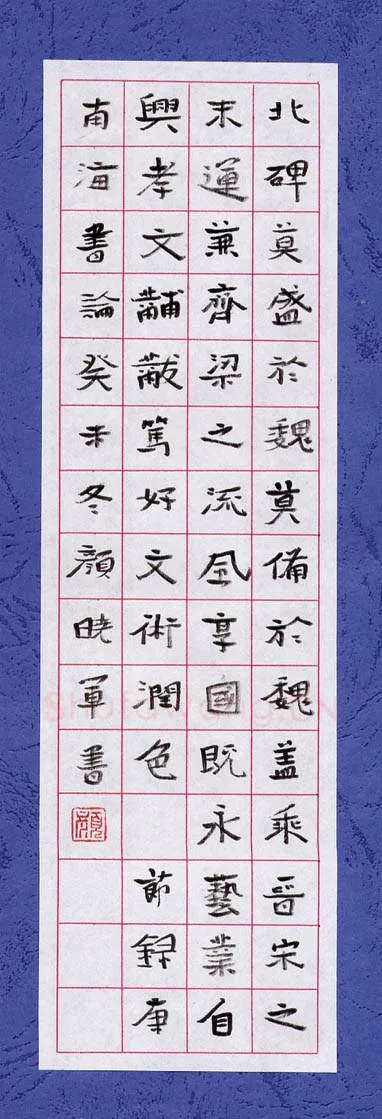 北碑莫盛於魏莫備於魏盖乘晉宋之
末運兼齊梁之流風享國既永藝業自
興孝文黼黻篤好文術潤色 節録康
南海書論癸未冬顏曉軍書
顏